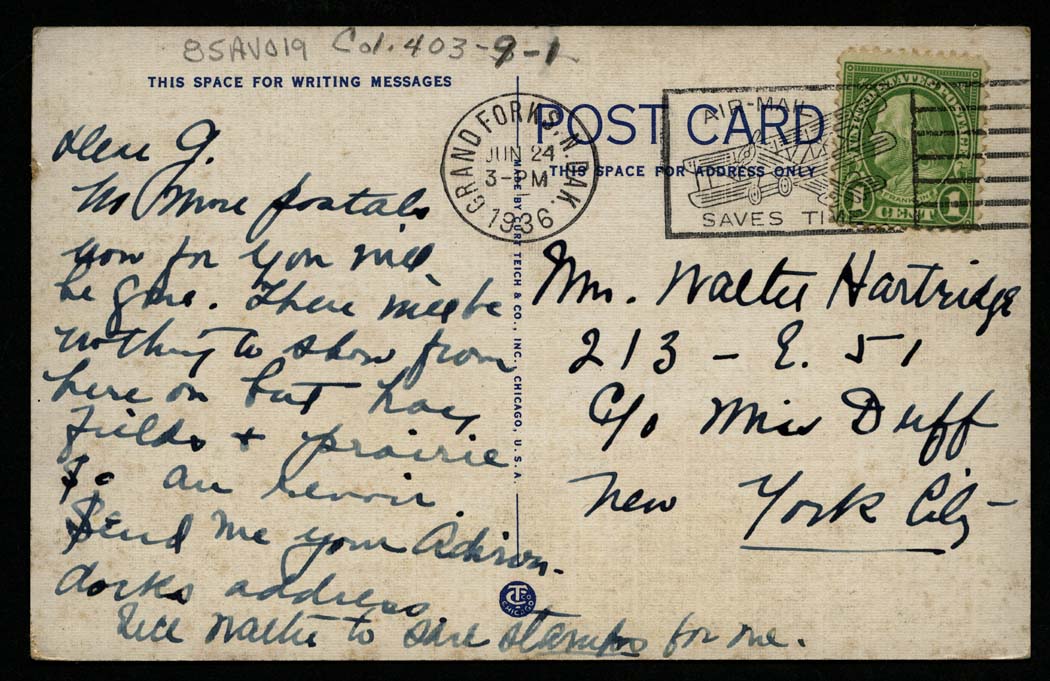 85AV019 Col. 403-9-1
THIS SPACE FOR WRITING MESSAGES
Dear G.
No more postals
now for you will
be gone. There will be
nothing to show from
here on but hay
fields + prairie
So au revoir.
Send me your Adiron-
dacks address
Tell Walter to save stamps for me.
MADE BY CURT TEICH & CO., INC., CHICAGO, U.S.A.
CHICAGO
GRAND FORKS, N. DAK.
JUN 24
3-PM
1936
AIR-MAIL
SAVES TIME
UNITED STATES POSTAGE
FRANKLIN
1 CENT 1
POST CARD
THIS SPACE FOR ADDRESS ONLY
Walter Hartridge
213 - E. 51
c/o Miss Duff
New York City